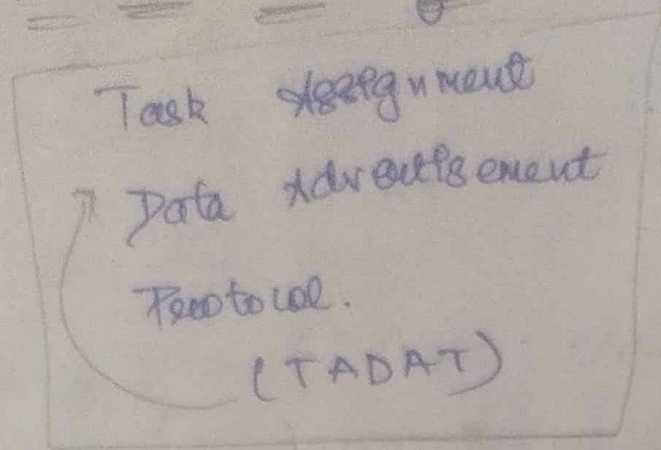 Task Assignment
Data Advertisement
Protocol.
(TADAT)